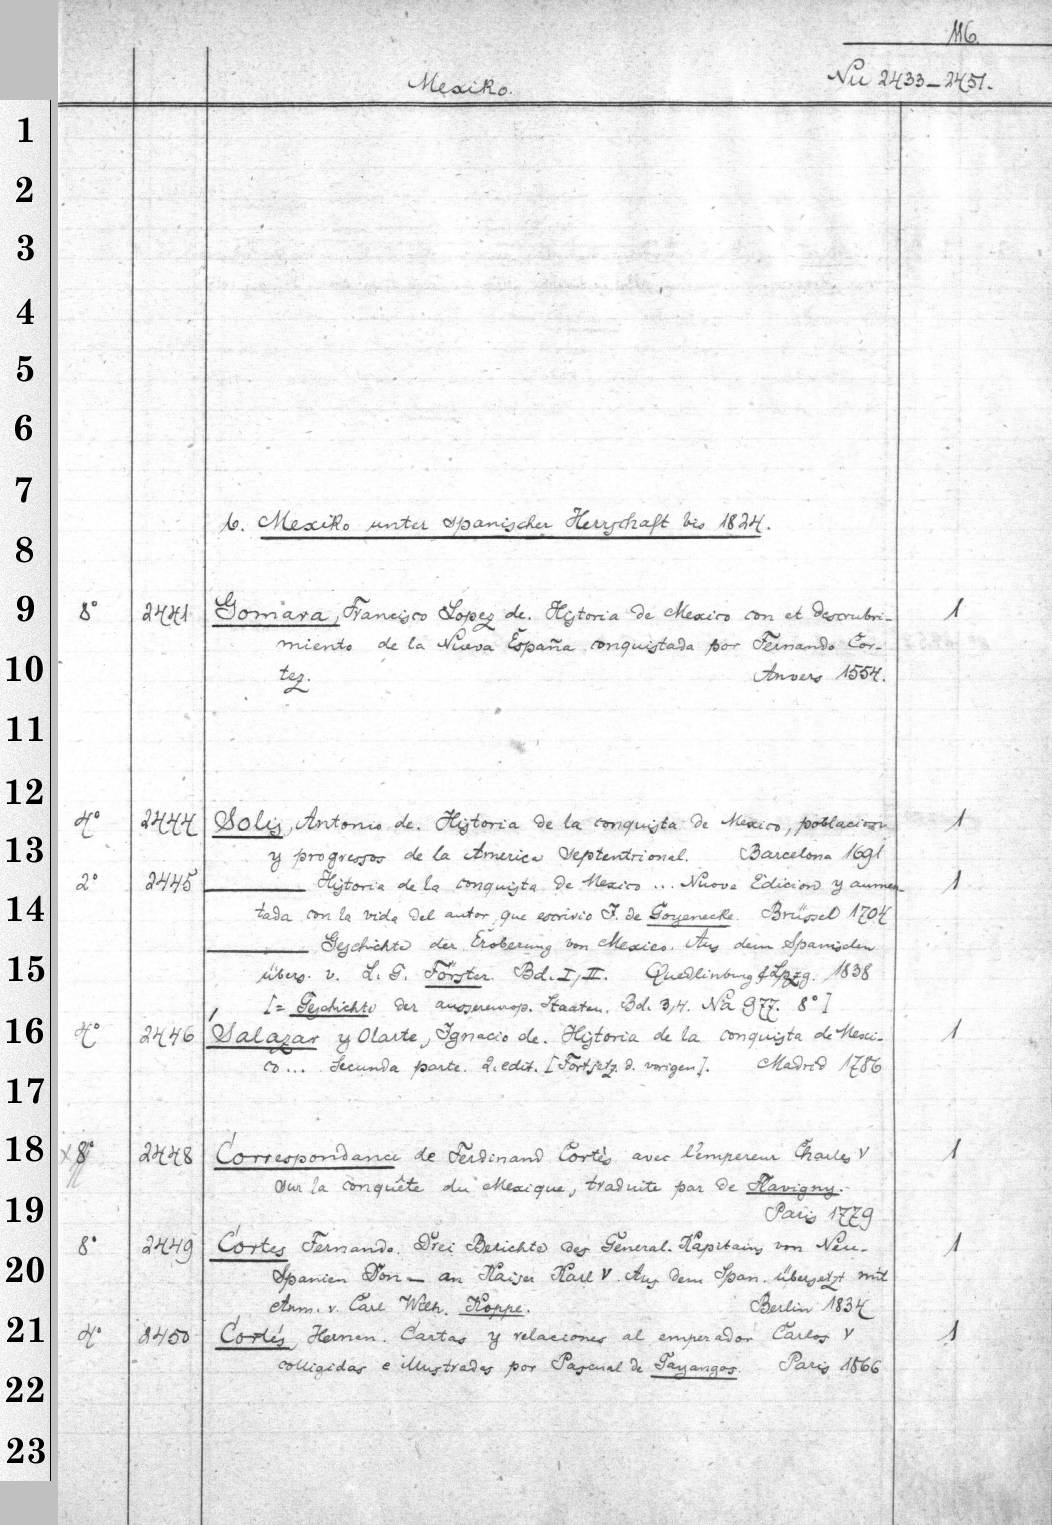 116.
Mexiko.
Nu 2433-2451.
1
2
3
4
5
6
7
b. Mexiko unter spanischer Herrschaft bis 1824.
8
9 8° 2441 Gomara, Francisco Lopez de. Historia de Mexico con et descrubri- 1
miento de la Nueva España conquistada por Fernando Cor-
10 tez. Anvers 1554.
11
12
4° 2444 Solis, Antonio de. Historia de la conquista de Mexico, poblacion 1
13 y progressos de la America septentrional. Barcelona 1691
2° 2445 ——— Historia de la conquista de Mexico ... Nuova Edicion y aumen- 1
14 tada con la vida del autor, que escrivio J. de Goyenecke. Brüssel 1704
——— Geschichte der Eroberung von Mexico. Aus dem Spanischen
15 übers. v. L. G. Förster. Bd. I, II. Quedlinburg & Lpzg. 1838
[= Geschichte der aussereurop. Staaten. Bd. 3,4. Na 977. 8°]
16 4° 2446 Salazar y Olarte, Ignacio de. Historia de la conquista de Mexi- 1
co ... Secunda parte. 2. edit. [Fortsetz. d. vorigen]. Madrid 1786
17
18 x 8° 2448 Correspondance de Ferdinand Cortès avec l'empereur Charles V 1
sur la conquête du Mexique, traduite par de Flavigny.
19 Paris 1779
8° 2449 Cortes Fernando. Drei Berichte des General-Kapitains von Neu- 1
20 Spanien Don — an Kaiser Karl V. Aus dem Span. übersetzt mit
Anm. v. Carl Wilh. Koppe. Berlin 1834
21 4° 2450 Cortés, Hernan. Cartas y relaciones al emperador Carlos V 1
colligidas e illustradas por Pascual de Gayangos. Paris 1866
22
23